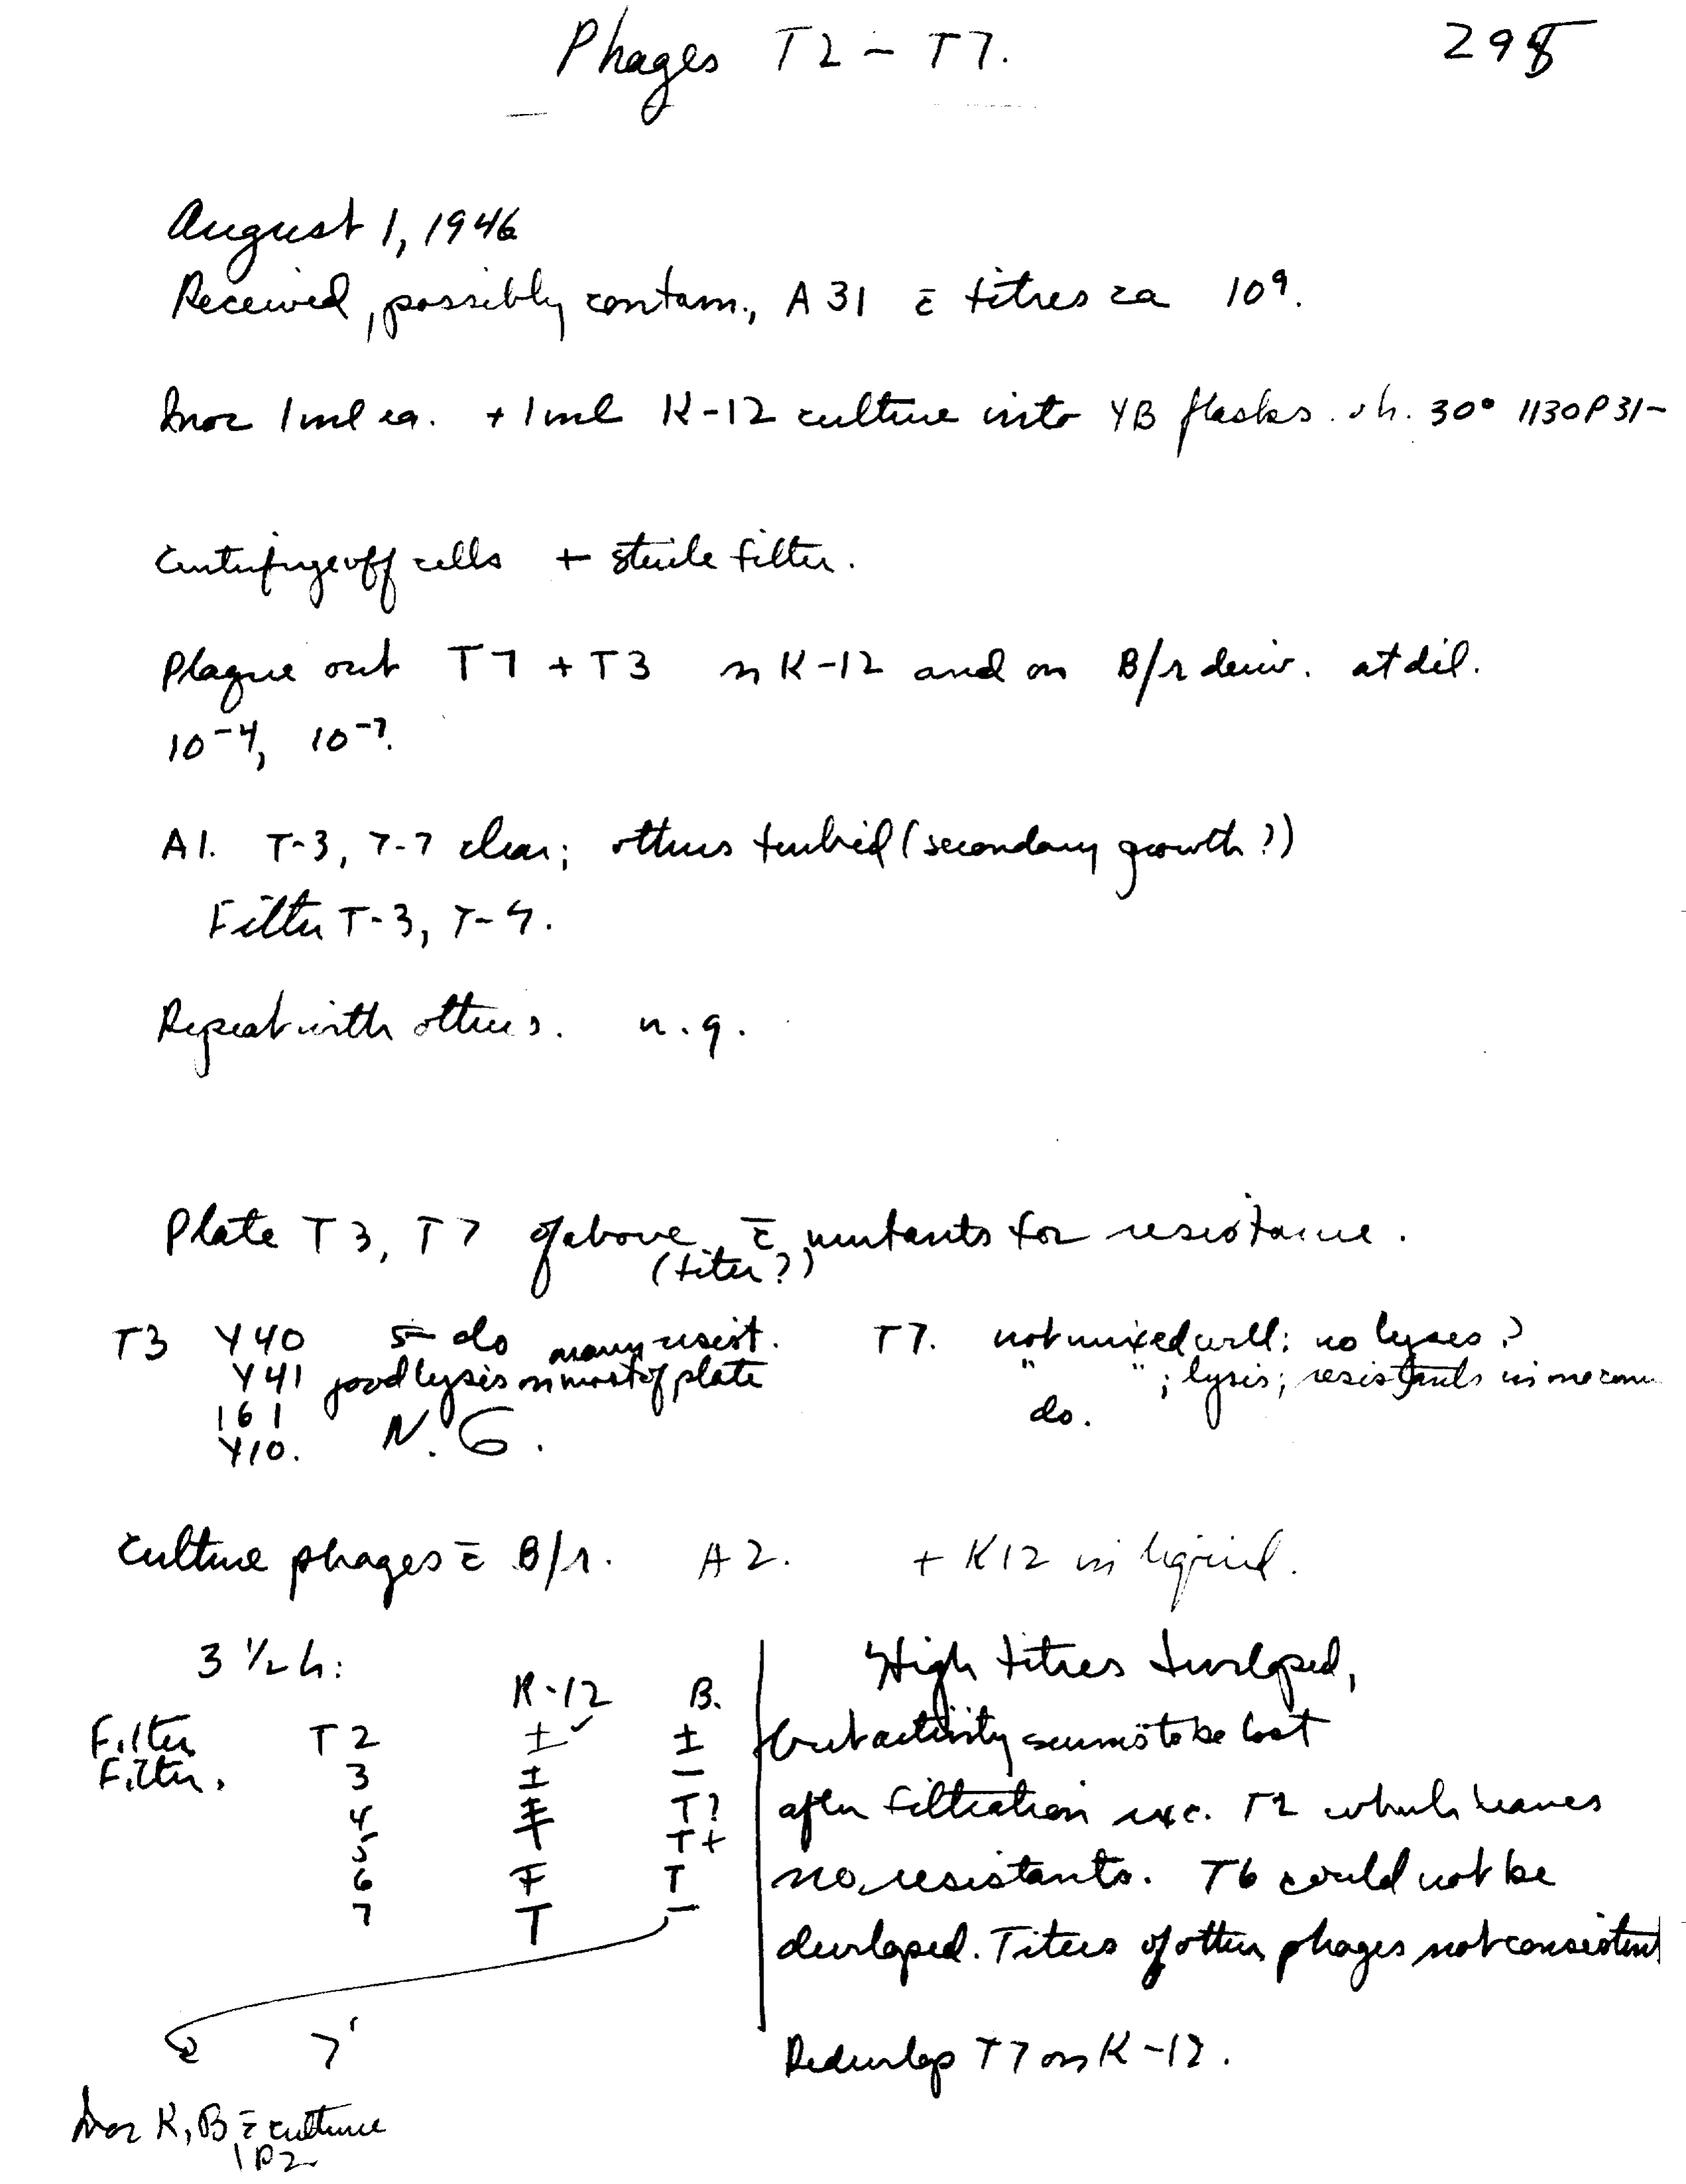 Phages T2 – T7.
August 1, 1946
Received, possibly contam., A31 c̄ titres ca 10⁹.
Inoc 1ml ea. + 1ml K-12 culture into YB flasks. sh. 30° 1130P31–
Centrifuge off cells + sterile filter.
Plaque out T7 + T3 on K-12 and on B/r deriv. at dil.
10⁻⁴, 10⁻⁷.
A1. T-3, T-7 clear; others turbid (secondary growth?)
Filter T-3, T-7.
Repeat with others. n.g.
Plate T3, T7 of above c̄ mutants for resistance.
(titer?)
T3 Y40 do many resist. T7. not mixed well: no lyses?
Y41 good lysis on most of plate " " ; lysis; resistants
161 do.
Y10. N.G.
Culture phages c̄ B/r. A2. + K12 in liquid.
3 ½ h:
K-12 B.
Filter T2 ± ✓ ±
Filter. 3 ± –
4 T?
5 T+
6 T
7 T –
High titres developed,
but activity seems to be lost
after filtration exc. T2 which leaves
no resistants. T6 could not be
developed. Titers of other phages not consistent
Redevelop T7 on K-12.
7'
Inoc K, B c̄ culture
1P2